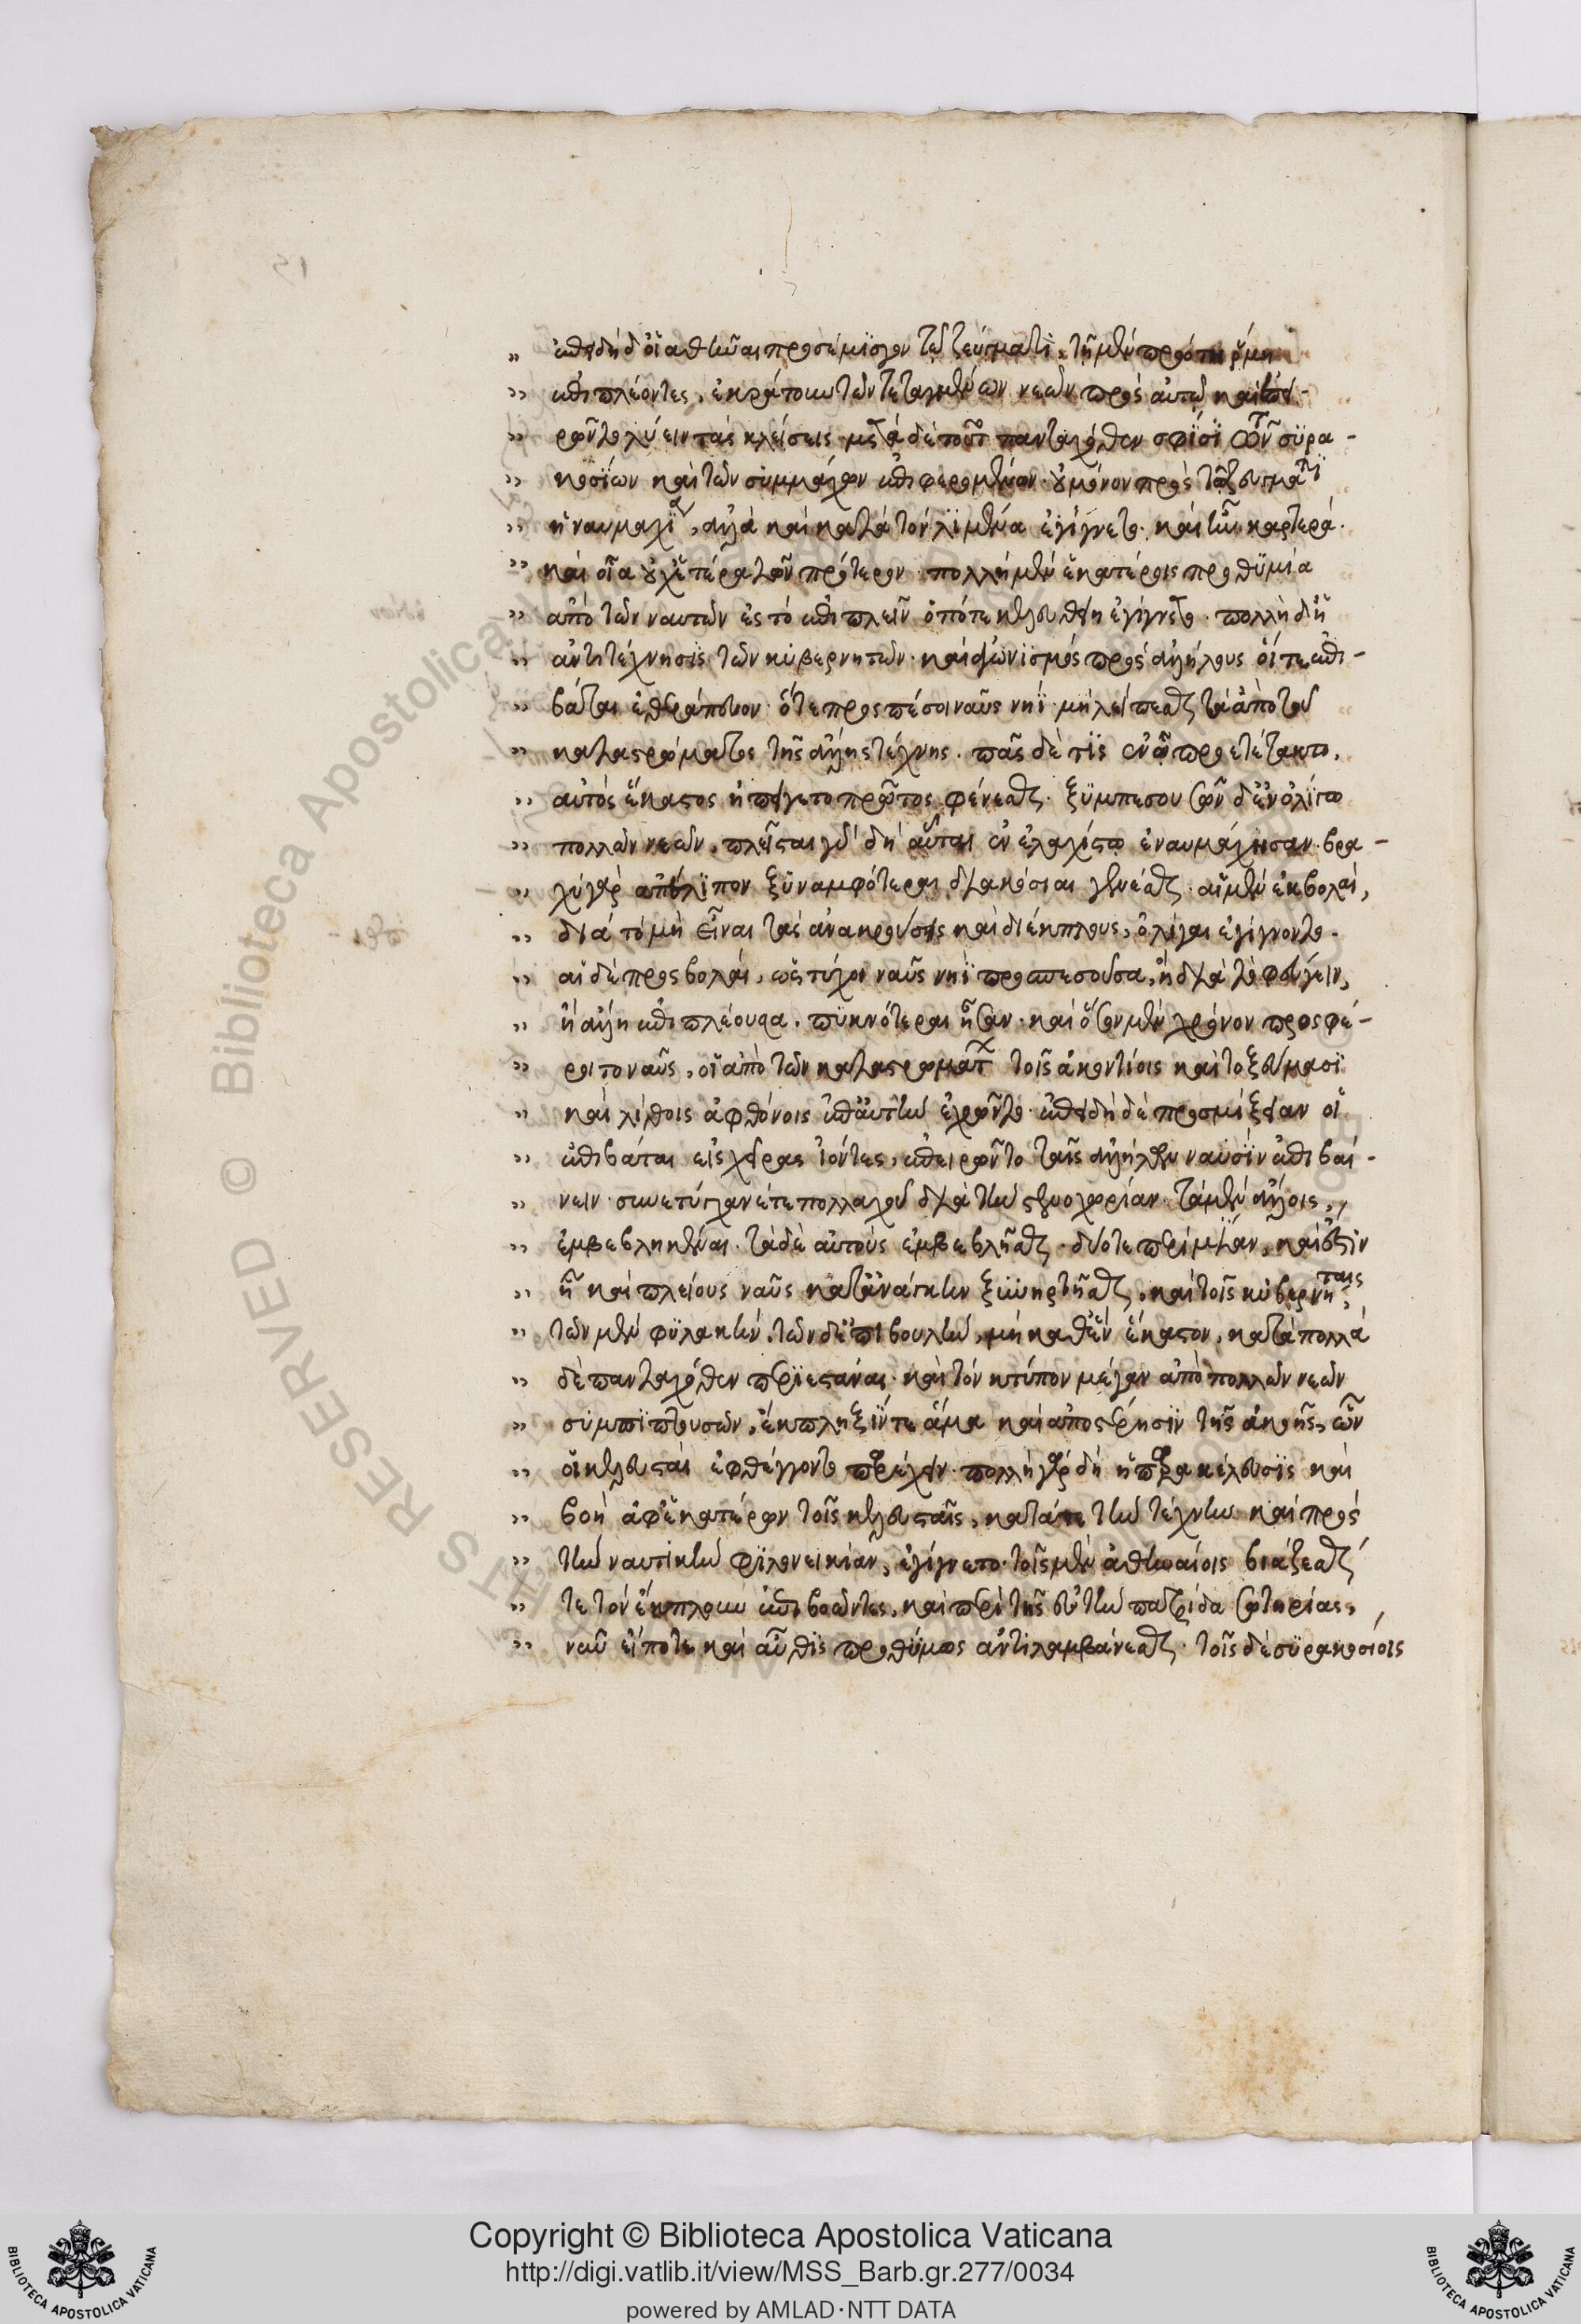 „ ἐπειδὴ δ' οἱ ἀθηναῖοι προσέμισγον τῷ ζεύγματι, τῇ μὲν πρώτῃ ῥύμῃ
„ ἐπιπλέοντες, ἐκράτουν τῶν τεταγμένων νεῶν πρὸς αὐτῷ καὶ ἐπει-
„ ρῶντο λύειν τὰς κλείσεις· μετὰ δὲ τοῦτο πανταχόθεν σφίσι τῶν συρα-
„ κοσίων καὶ τῶν συμμάχων ἐπιφερομένων· οὐ μόνον πρὸς τῷ ζεύγματι
„ ἡ ναυμαχία, ἀλλὰ καὶ κατὰ τὸν λιμένα ἐγίγνετο· καὶ ἦν καρτερά·
„ καὶ οἵα οὐχ ἑτέρα τῶν πρότερον· πολλὴ μὲν ἑκατέροις προθυμία
„ ἀπὸ τῶν ναυτῶν ἐς τὸ ἐπιπλεῖν ὁπότε κελευσθείη ἐγίγνετο· πολλὴ δὲ ἡ
„ ἀντιτέχνησις τῶν κυβερνητῶν· καὶ ἀγωνισμὸς πρὸς ἀλλήλους οἵ τε ἐπι-
„ βάται ἐθεράπευον· ὅτε προσπέσοι ναῦς νηῒ· μὴ λείπεσθαι τὰ ἀπὸ τοῦ
„ καταστρώματος τῆς ἄλλης τέχνης. πᾶς δέ τις ἐν ᾧ προσετέτακτο,
„ αὐτὸς ἕκαστος ἠπείγετο πρῶτος φαίνεσθαι· ξυμπεσουσῶν δὲ ἐν ὀλίγῳ
„ πολλῶν νεῶν, πλεῖσται γὰρ δὴ αὗται ἐν ἐλαχίστῳ ἐναυμάχησαν· βρα-
„ χὺ γὰρ ἀπέλιπον ξυναμφότεραι διακόσιαι γενέσθαι· αἱ μὲν ἐκβολαί,
„ διὰ τὸ μὴ εἶναι τὰς ἀνακρούσεις καὶ διέκπλους, ὀλίγαι ἐγίγνοντο·
„ αἱ δὲ προσβολαί, ὡς τύχοι ναῦς νηῒ προσπεσοῦσα, ἢ διὰ τὸ φεύγειν,
„ ἢ ἄλλῃ ἐπιπλέουσα, πυκνότεραι ἦσαν· καὶ ὅσον μὲν χρόνον προσφέ-
„ ροιτο ναῦς, οἱ ἀπὸ τῶν καταστρωμάτων τοῖς ἀκοντίοις καὶ τοξεύμασι
„ καὶ λίθοις ἀφθόνοις ἐπ' αὐτὴν ἐχρῶντο· ἐπειδὴ δὲ προσμίξειαν οἱ
„ ἐπιβάται εἰς χεῖρας ἰόντες, ἐπειρῶντο ταῖς ἀλλήλων ναυσὶν ἐπιβαί-
„ νειν· συνετύγχανέ τε πολλαχοῦ διὰ τὴν στενοχωρίαν· τὰ μὲν ἄλλοις,
„ ἐμβεβληκέναι· τὰ δὲ αὐτοὺς ἐμβεβλῆσθαι· δύο τε περὶ μίαν, καὶ ἔστιν
„ ᾗ καὶ πλείους ναῦς κατ' ἀνάγκην ξυνηρτῆσθαι, καὶ τοῖς κυβερνήταις
„ τῶν μὲν φυλακὴν, τῶν δὲ ἐπιβουλὴν, μὴ καθ' ἓν ἕκαστον, κατὰ πολλὰ
„ δὲ πανταχόθεν περιεστάναι· καὶ τὸν κτύπον μέγαν ἀπὸ πολλῶν νεῶν
„ συμπιπτουσῶν, ἔκπληξίν τε ἅμα καὶ ἀποστέρησιν τῆς ἀκοῆς, ὧν
„ οἱ κελευσταὶ ἐφθέγγοντο παρέχειν· πολλὴ γὰρ δὴ ἡ παρακέλευσις καὶ
„ βοὴ ἀφ' ἑκατέρων τοῖς κελευσταῖς, κατά τε τὴν τέχνην καὶ πρὸς
„ τὴν αὐτίκα φιλονεικίαν, ἐγίγνετο· τοῖς μὲν ἀθηναίοις βιάζεσθαί
„ τε τὸν ἔκπλουν ἐπιβοῶντες, καὶ περὶ τῆς ἐς τὴν πατρίδα σωτηρίας,
„ νῦν εἴποτε καὶ αὖθις προθύμως ἀντιλαμβάνεσθαι· τοῖς δὲ συρακοσίοις